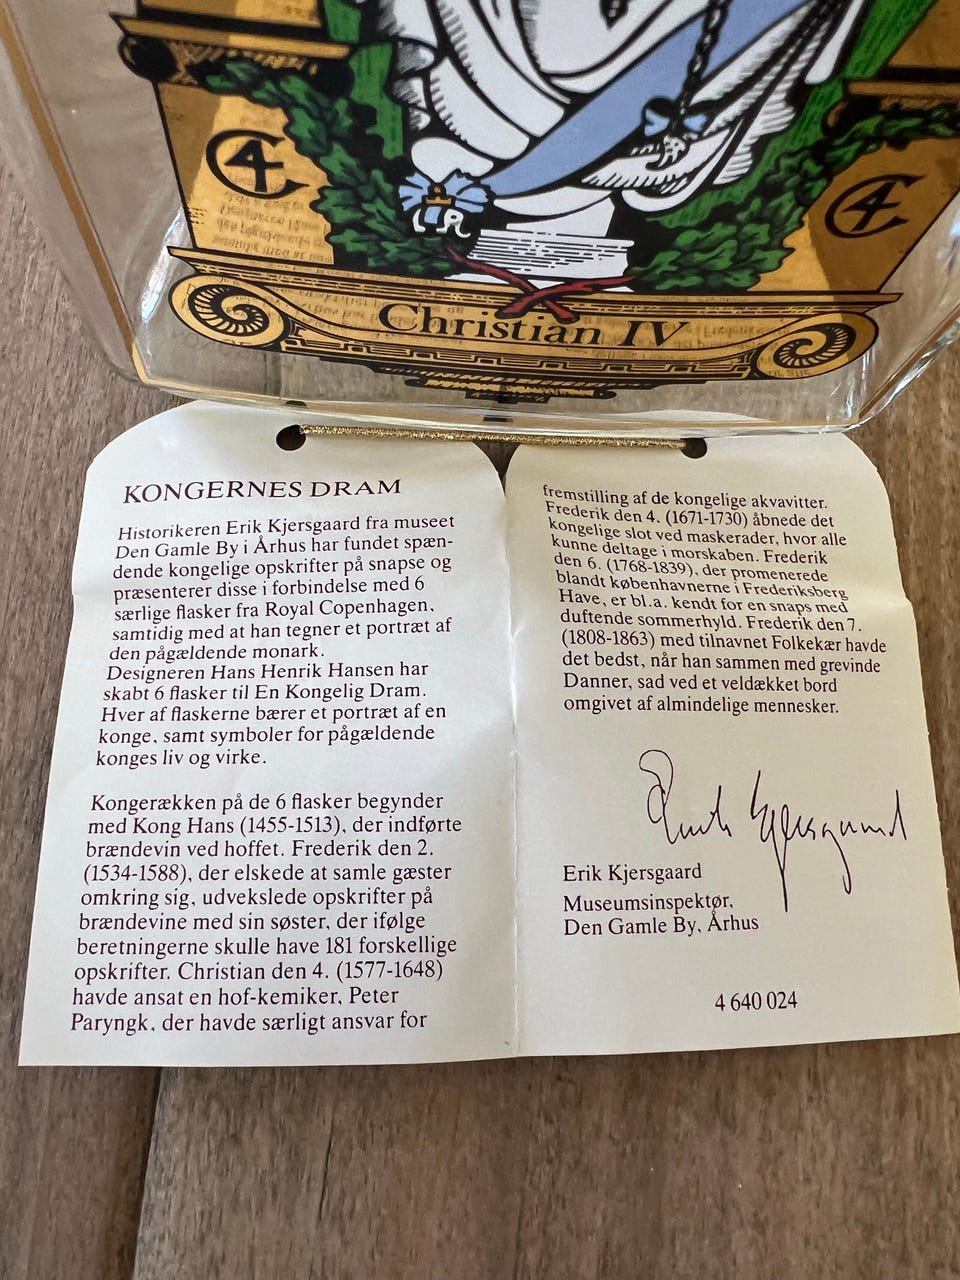 C4
C4
Christian IV
KONGERNES DRAM
Historikeren Erik Kjersgaard fra museet
Den Gamle By i Århus har fundet spæn-
dende kongelige opskrifter på snapse og
præsenterer disse i forbindelse med 6
særlige flasker fra Royal Copenhagen,
samtidig med at han tegner et portræt af
den pågældende monark.
Designeren Hans Henrik Hansen har
skabt 6 flasker til En Kongelig Dram.
Hver af flaskerne bærer et portræt af en
konge, samt symboler for pågældende
konges liv og virke.
Kongerækken på de 6 flasker begynder
med Kong Hans (1455-1513), der indførte
brændevin ved hoffet. Frederik den 2.
(1534-1588), der elskede at samle gæster
omkring sig, udvekslede opskrifter på
brændevine med sin søster, der ifølge
beretningerne skulle have 181 forskellige
opskrifter. Christian den 4. (1577-1648)
havde ansat en hof-kemiker, Peter
Paryngk, der havde særligt ansvar for
fremstilling af de kongelige akvavitter.
Frederik den 4. (1671-1730) åbnede det
kongelige slot ved maskerader, hvor alle
kunne deltage i morskaben. Frederik
den 6. (1768-1839), der promenerede
blandt københavnerne i Frederiksberg
Have, er bl.a. kendt for en snaps med
duftende sommerhyld. Frederik den 7.
(1808-1863) med tilnavnet Folkekær havde
det bedst, når han sammen med grevinde
Danner, sad ved et veldækket bord
omgivet af almindelige mennesker.
Erik Kjersgaard
Erik Kjersgaard
Museumsinspektør,
Den Gamle By, Århus
4 640 024